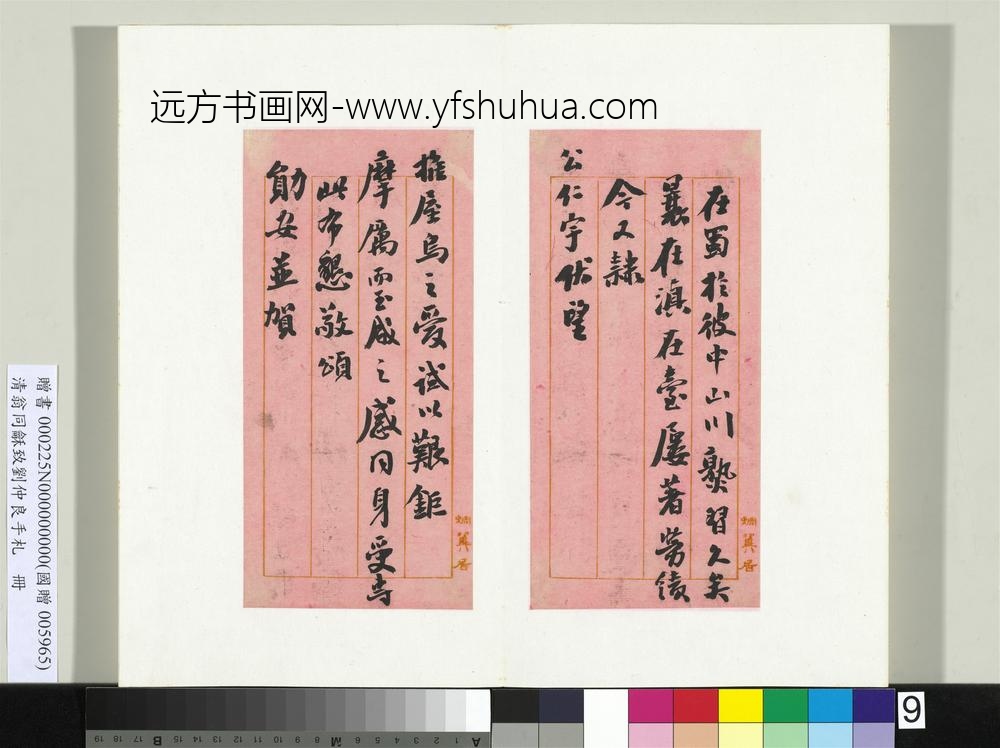 远方书画网-www.yfshuhua.com
在蜀於彼中山川熟習久矣
曩在滇在臺屢著勞績
今又隸
公仁宇伏望
推屋烏之愛試以艱鉅
摩厲而玉成之感同身受専
此布懇敬頌
勛安並賀
箕居
箕居
贈書 000225N000000000(國贈 005965)
清翁同龢致劉仲良手札 冊
9
A 1 2 3 4 5 6 M 8 9 10 11 12 13 14 15 B 17 18 19